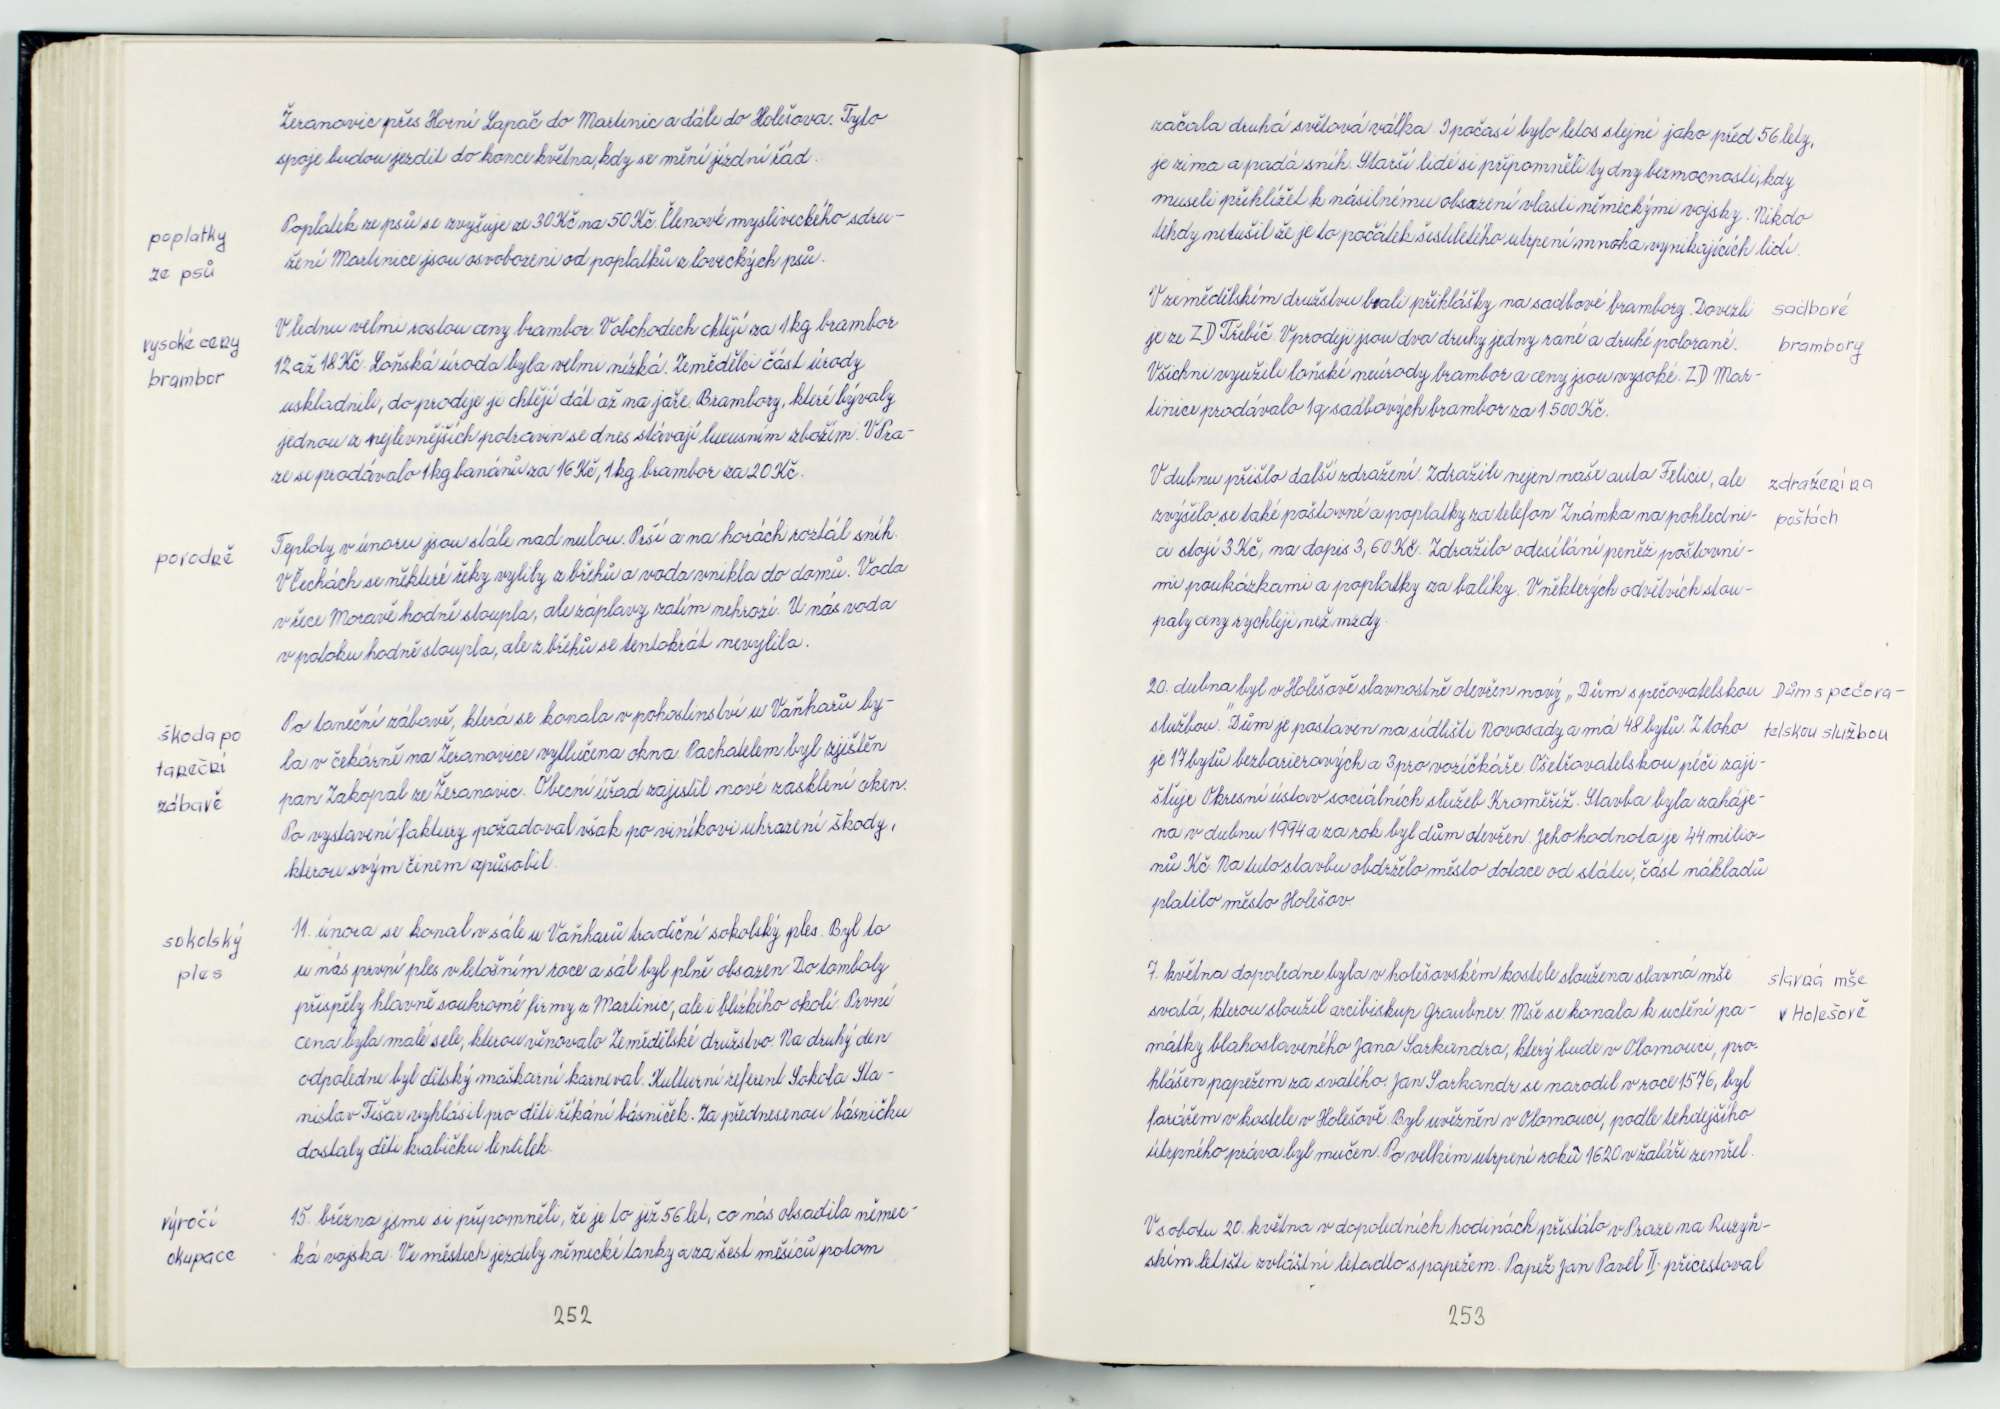 Žeranovic přes Horní Lapač do Martinic a dále do Holešova. Tyto
spoje budou jezdit do konce května, kdy se mění jízdní řád.
poplatky
ze psů
Poplatek ze psů se zvyšuje ze 30 Kč na 50 Kč. Členové mysliveckého sdru-
žení Martinice jsou osvobozeni od poplatků z loveckých psů.
vysoké ceny
brambor
V lednu velmi rostou ceny brambor. V obchodech chtějí za 1 kg brambor
12 až 18 Kč. Loňská úroda byla velmi nízká. Zemědělci část úrody
uskladnili, do prodeje ji chtějí dát až na jaře. Brambory, které bývaly
jednou z nejlevnějších potravin se dnes stávají luxusním zbožím. V Pra-
ze se prodávalo 1 kg banánů za 16 Kč, 1 kg brambor za 20 Kč.
povodně
Teploty v únoru jsou stále nad nulou. Prší a na horách roztál sníh.
V Čechách se některé řeky vylily z břehů a voda vnikla do domů. Voda
v řece Moravě hodně stoupla, ale záplavy zatím nehrozí. U nás voda
v potoku hodně stoupla, ale z břehů se tentokrát nevylila.
škoda po
taneční
zábavě
Po taneční zábavě, která se konala v pohostinství u Vaňharů by-
la v čekárně na Žeranovice vytlučena okna. Pachatelem byl zjištěn
pan Zakopal ze Žeranovic. Obecní úřad zajistil nové zasklení oken.
Po vystavení faktury požadoval však po viníkovi uhrazení škody,
kterou svým činem způsobil.
sokolský
ples
11. února se konal v sále u Vaňharů tradiční sokolský ples. Byl to
u nás první ples v letošním roce a sál byl plně obsazen. Do tomboly
přispěly hlavně soukromé firmy z Martinic, ale i blízkého okolí. První
cena byla malé sele, kterou věnovalo Zemědělské družstvo. Na druhý den
odpoledne byl dětský maškarní karneval. Kulturní referent Sokola Sta-
nislav Tišar vyhlásil pro děti říkání básniček. Za přednesenou básničku
dostaly děti krabičku lentilek.
výročí
okupace
15. března jsme si připomněli, že je to již 56 let, co nás obsadila němec-
ká vojska. Ve městech jezdily německé tanky a za šest měsíců potom
252
začala druhá světová válka. I počasí bylo letos stejné jako před 56 lety,
je zima a padá sníh. Starší lidé si připomněli ty dny bezmocnosti, kdy
museli přihlížet k násilnému obsazení vlasti německými vojsky. Nikdo
tehdy netušil že je to počátek šestiletého utrpení mnoha vynikajících lidí.
V zemědělském družstvu brali přihlášky na sadbové brambory. Dovezli
je ze ZD Třebíč. V prodeji jsou dva druhy jedny rané a druhé polorané.
Všichni využili loňské neúrody brambor a ceny jsou vysoké. ZD Mar-
tinice prodávalo 1q sadbových brambor za 1 500 Kč.
sadbové
brambory
V dubnu přišlo další zdražení. Zdražili nejen naše auta Felicie, ale
zvýšilo se také poštovné a poplatky za telefon. Známka na pohledni-
ci stojí 3 Kč, na dopis 3,60 Kč. Zdražilo odesílání peněz poštovní-
mi poukázkami a poplatky za balíky. V některých odvětvích stou-
paly ceny rychleji než mzdy.
zdražení na
poštách
20. dubna byl v Holešově slavnostně otevřen nový „Dům s pečovatelskou
službou." Dům je postaven na sídlišti Novosady a má 48 bytů. Z toho
je 17 bytů bezbarierových a 3 pro vozíčkáře. Ošetřovatelskou péči zaji-
šťuje Okresní ústav sociálních služeb Kroměříž. Stavba byla zaháje-
na v dubnu 1994 a za rok byl dům otevřen. Jeho hodnota je 44 milio-
nů Kč. Na tuto stavbu obdrželo město dotace od státu, část nákladů
platilo město Holešov.
Dům s pečova-
telskou službou
7. května dopoledne byla v holešovském kostele sloužena slavná mše
svatá, kterou sloužil arcibiskup Graubner. Mše se konala k uctění pa-
mátky blahoslaveného Jana Sarkandra, který bude v Olomouci, pro-
hlášen papežem za svatého. Jan Sarkandr se narodil v roce 1576, byl
farářem v kostele v Holešově. Byl uvězněn v Olomouci, podle tehdejšího
útrpného práva byl mučen. Po velkém utrpení roku 1620 v žaláři zemřel.
slavná mše
v Holešově
V sobotu 20. května v dopoledních hodinách přistálo v Praze na Ruzyň-
ském letišti zvláštní letadlo s papežem. Papež Jan Pavel II. přicestoval
253